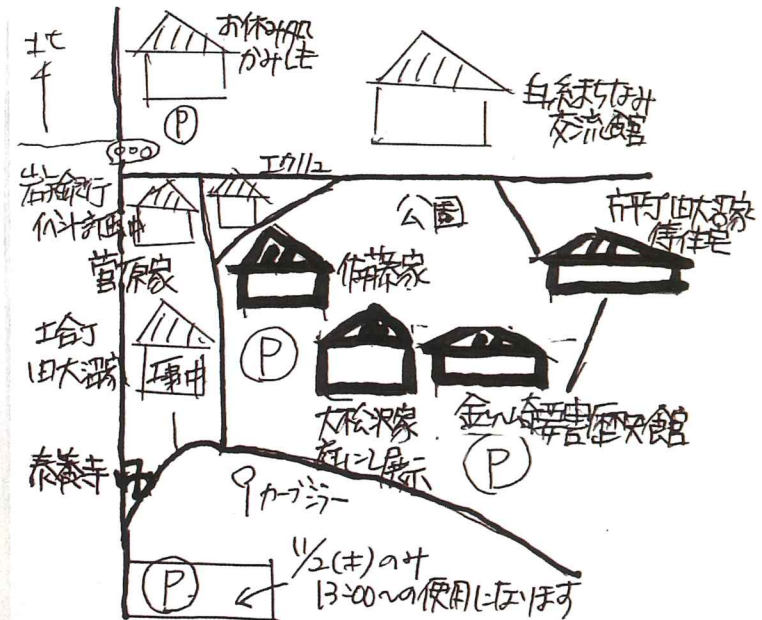 北
お休み処
かみしも
P
白糸まちなみ
交流館
岩銀行
公園
片平丁旧大沼家
侍住宅
菅原家
佐藤家
土合丁
旧大沼家
工事中
P
大松沢家
庭にし展示
金ヶ崎要害歴史館
P
泰養寺
カーブミラー
11/2(土)のみ
13:00〜の使用になります
P